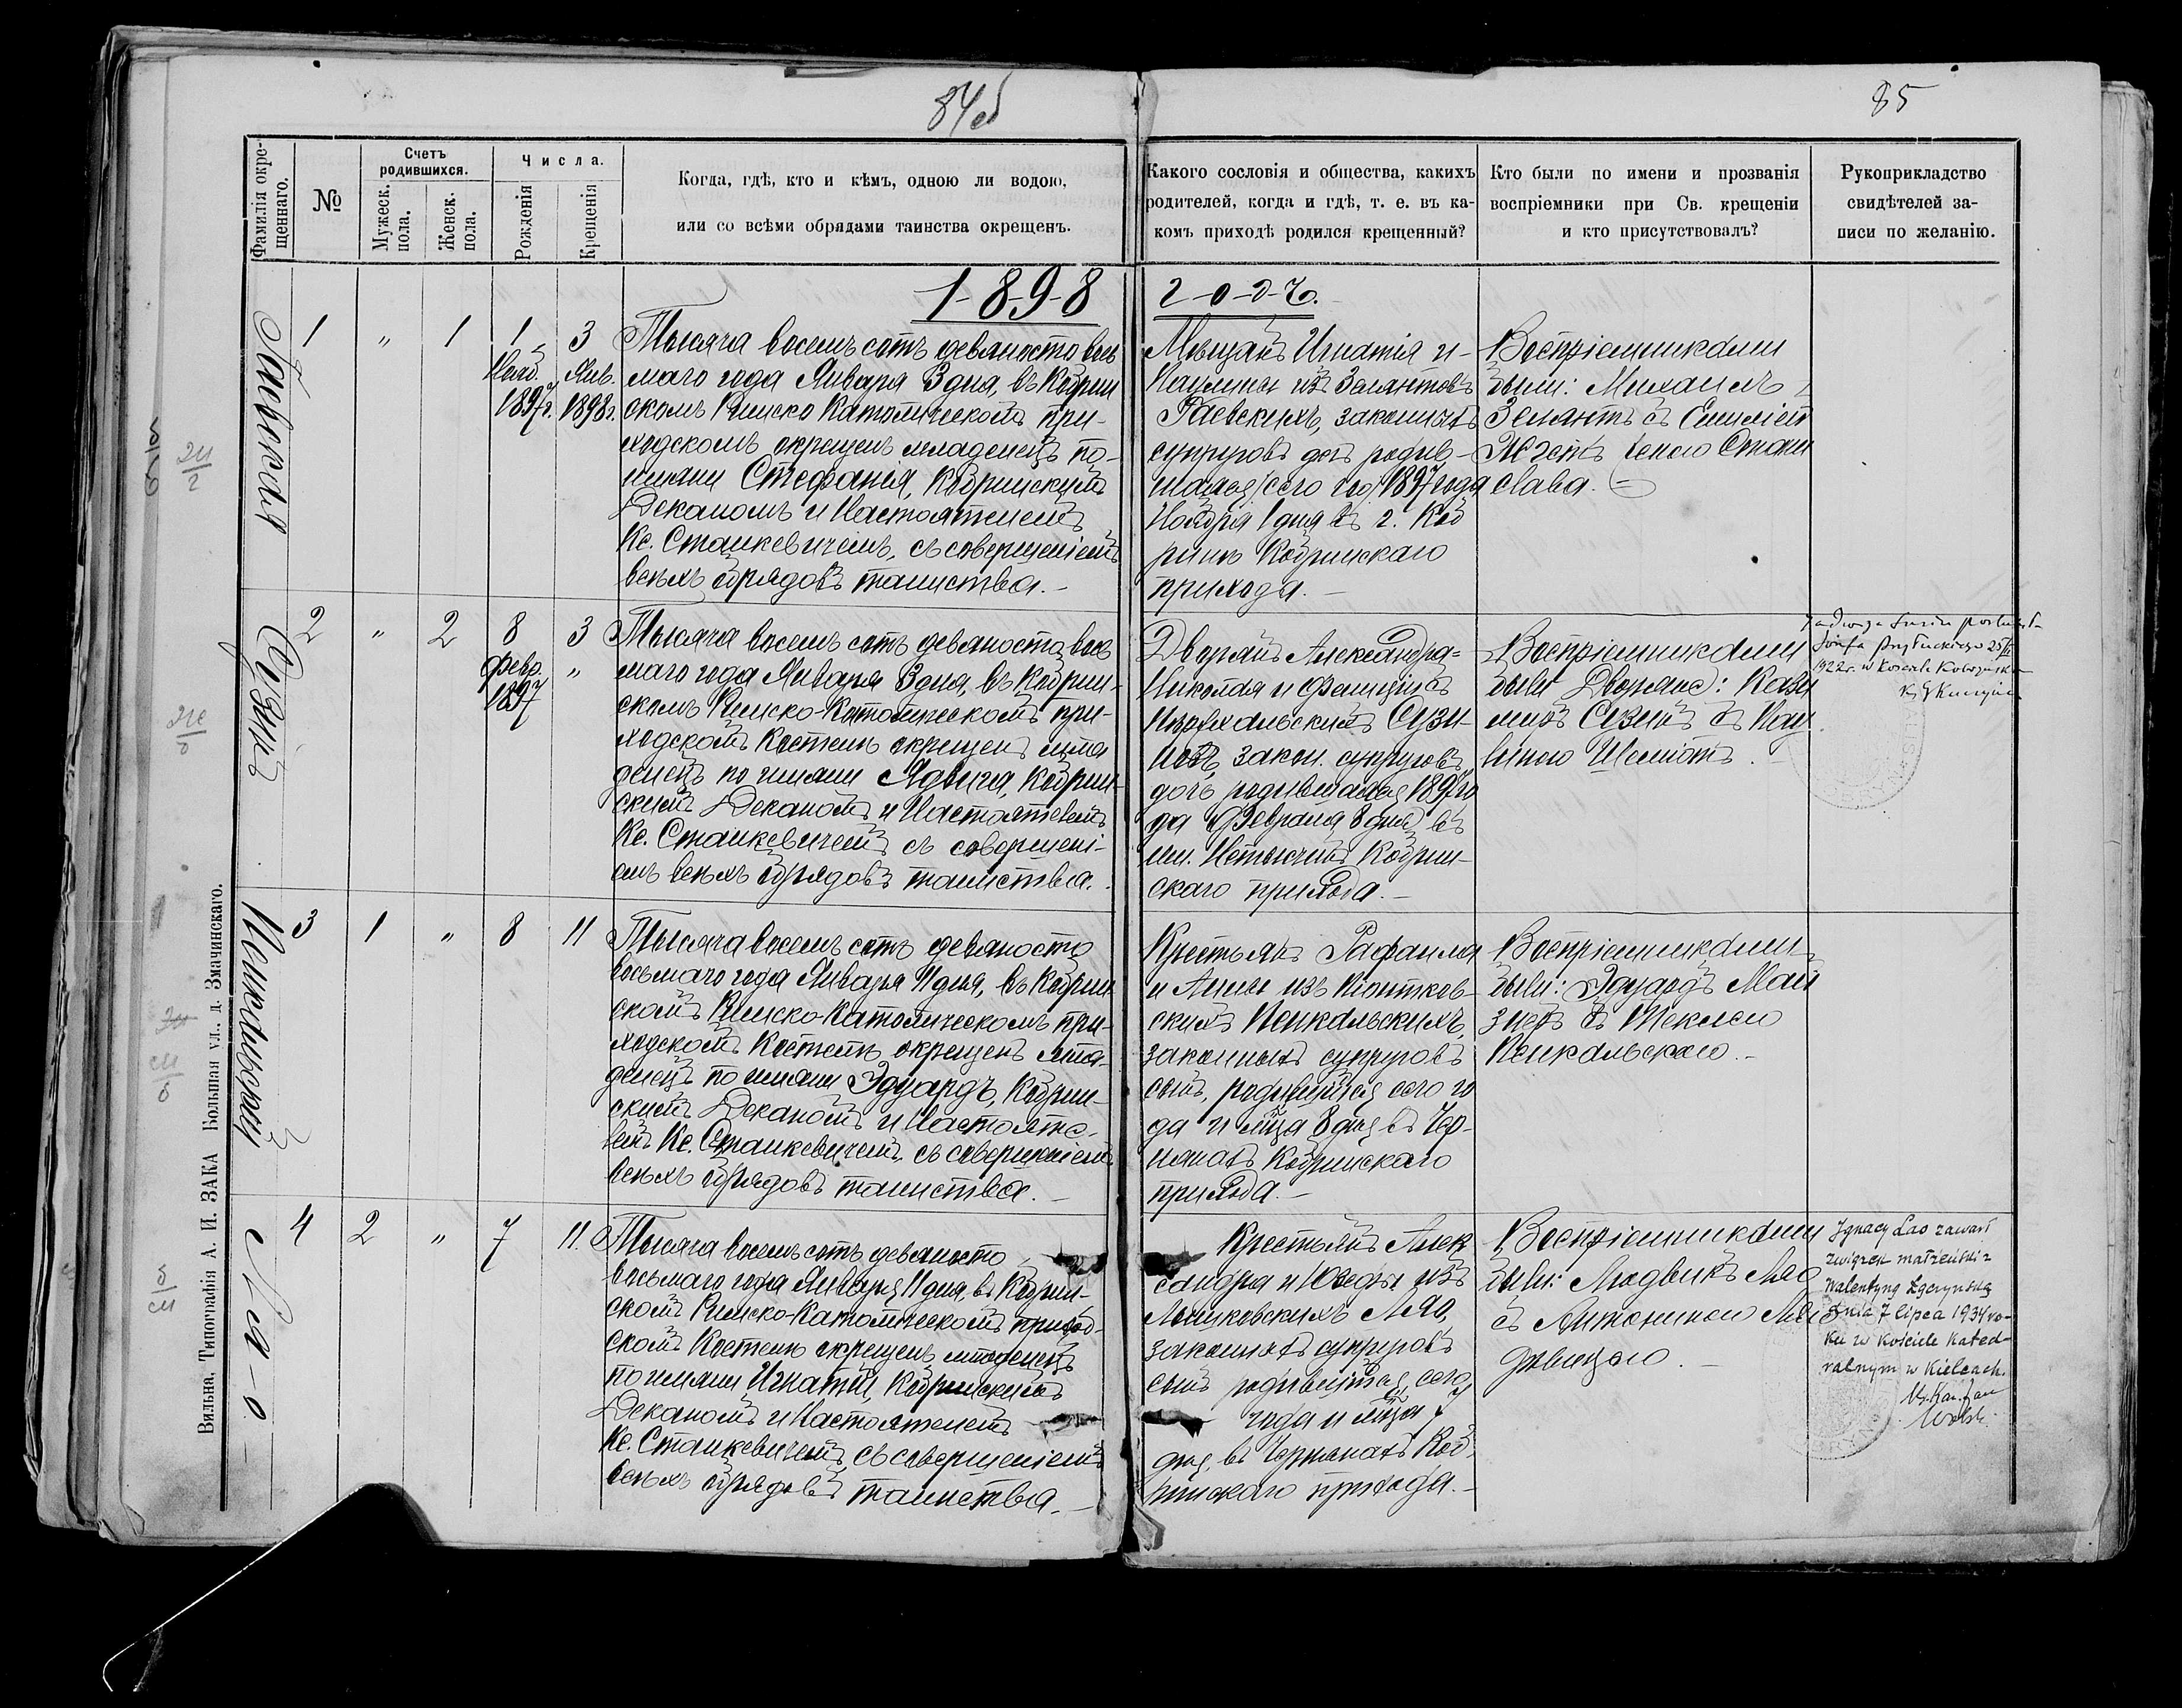 84об
85
Фамилія окре-
щеннаго.
№
Счетъ
родившихся.
Мужеск.
пола.
Женск.
пола.
Числа.
Рожденія
Крещенія
Когда, гдѣ, кто и кѣмъ, одною ли водою,
или со всѣми обрядами таинства окрещенъ.
Какого сословія и общества, какихъ
родителей, когда и гдѣ, т. е. въ ка-
комъ приходѣ родился крещенный?
Кто были по имени и прозванія
воспріемники при Св. крещеніи
и кто присутствовалъ?
Рукоприкладство
свидѣтелей за-
писи по желанію.
1-8-9-8
г-о-д-ъ.
Гаевская
1
"
1
1
Нояб.
1897г.
3
Янв.
1898г.
Тысяча восемь сотъ девяносто вось
маго года Января 3 дня, въ Кобрин
скомъ Римско Католическомъ при-
ходскомъ окрещенъ младенецъ по-
имени Стефанія, Кобринскимъ
Деканомъ и Настоятелемъ
Кс. Станкевичемъ, съ совершеніемъ
всѣхъ обрядовъ таинства.-
Мѣщанъ Игнатія и-
изъ Зелянтовъ
Гаевскихъ, законныхъ
супруговъ дочь родив-
шаяся 1897 года
Ноября 1 дня въ г. Коб
ринѣ Кобринскаго
прихода.-
Воспріемниками
были: Михаилъ
Зелянтъ съ Емиліею
женою Стани
слава.
Сузинъ
2
"
2
8
Февр.
1897
3
"
Тысяча восемь сотъ девяносто вось
маго года Января 3 дня, въ Кобрин-
скомъ Римско-Католическомъ при-
ходскомъ Костелѣ окрещенъ мла
денецъ по имени Ядвига, Кобрин-
скимъ Деканомъ и Настоятелемъ
Кс. Станкевичемъ съ совершені-
емъ всѣхъ обрядовъ таинства.
Дворянъ Александра-
Николая и Фелиціи съ
Сузи-
новъ, закон. супруговъ
дочь родившаяся 1897 го
да Февраля 8 дня въ
им. Кобрин-
скаго прихода.-
Воспріемниками
были Дворяне: Кази
миръ Сузинъ съ Пау
линою Шемiотъ.
Józefa
1922 r. w
Пенкальскій
3
1
"
8
11
Тысяча восемь сотъ девяносто
восьмаго года Января 11 дня, въ Кобрин-
скомъ Римско-Католическомъ при-
ходскомъ Костелѣ окрещенъ мла-
денецъ по имени Эдуардъ, Кобрин-
скимъ Деканомъ и Настояте-
лемъ Кс. Станкевичемъ, съ совершеніемъ
всѣхъ обрядовъ таинства.-
Крестьянъ Рафаила
и Анны изъ
скихъ Пенкальскихъ,
законныхъ супруговъ
сынъ, родившійся сего го
да и м-ца 8 дня въ Чер-
нянахъ Кобринскаго
прихода.-
Воспріемниками
были: Эдуардъ
съ Теклею
Пенкальскою.-
Ля-о
4
2
"
7
11.
Тысяча восемь сотъ девяносто
восьмаго года Января 11 дня, въ Кобрин-
скомъ Римско-Католическомъ приход-
скомъ Костелѣ окрещенъ младенецъ
по имени Игнатій, Кобринскимъ
Деканомъ и Настоятелемъ
Кс. Станкевичемъ, съ совершеніемъ
всѣхъ обрядовъ таинства.-
Крестьянъ Алек
сандра и Юзефы изъ
Ляо,
законныхъ супруговъ
сынъ родившійся сего
года и м-ца 7
дня, въ Чернянахъ Коб
ринскаго прихода.-
Воспріемниками
были: Людвикъ Ляо
съ Антониною Ляо
дѣвицею.-
Ignacy Lao zawarł
związek małżeński z
Walentyną
dnia 7 lipca 1934 ro-
ku w kościele kated-
ralnym w Kielcach.
Вильна, Типографія А. И. ЗАКА Большая ул., д. Змачинскаго.